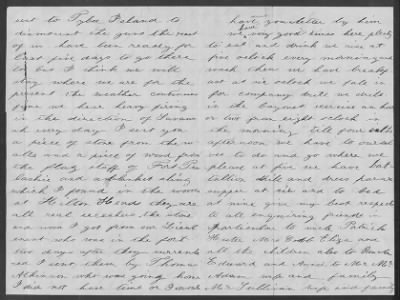 sent to Tybee Island to
dismount the guns the rest
of us have been ready for
last five days to go there
to but I think we will
stay where we are for the
present the weather continues
fine we hear heavy firing
in the direction of Savan
ah every day I sent you
a piece of stone from the w
alls and a piece of wood from
the flag staff of Fort Pu
laskie and a
which I found in the woods
at Hilton Head they are
all real the stone
and wood I got from our Lieut
enant who was in the fort
two days after they surrende
ed I sent them by Thomas
Atkinson who was going home
I did not have time or I would
have you a letter by him
we have very good times here plenty
to eat and drink we rise at
five oclock every morning and
wash then we have breakf
ast at six oclock we fall in
for company drill we drill
in the bayonet exercise an hour
or two from eight oclock in
the morning till four
afternoon we have to ourse
ves to do and go where we
please at five we have bat
tallion drill and dress parade
supper at six and to bed
at nine give my best respects
to all enquiring friends in
particular to Patrick
Hunter Mrs Cobb Eliza and
all the children also to
Edward and Annie to Mr Mc
Adam wife and family
Mr Sullivan wife and family